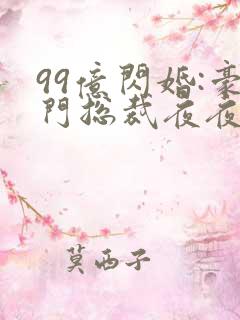 99億閃婚:豪
門總裁夜夜
莫西子